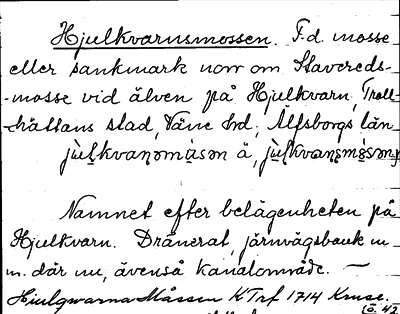 Hjulkvarnsmossen. F.d. mosse
eller sankmark norr om Stavereds-
-mosse vid älven på Hjulkvarn, Troll-
-hättans stad, Väne hd, Älfsborgs län
Namnet efter belägenheten på
Hjulkvarn. Dränerat, järnvägsbank m
m. där nu, ävenså kanalområde. —
Hiulqwarna Måssen KTrf 1714 Kruse.